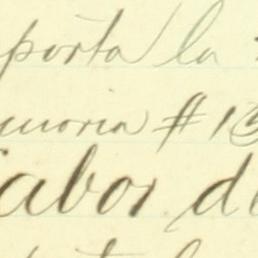 porta la
moria # 13
abor de